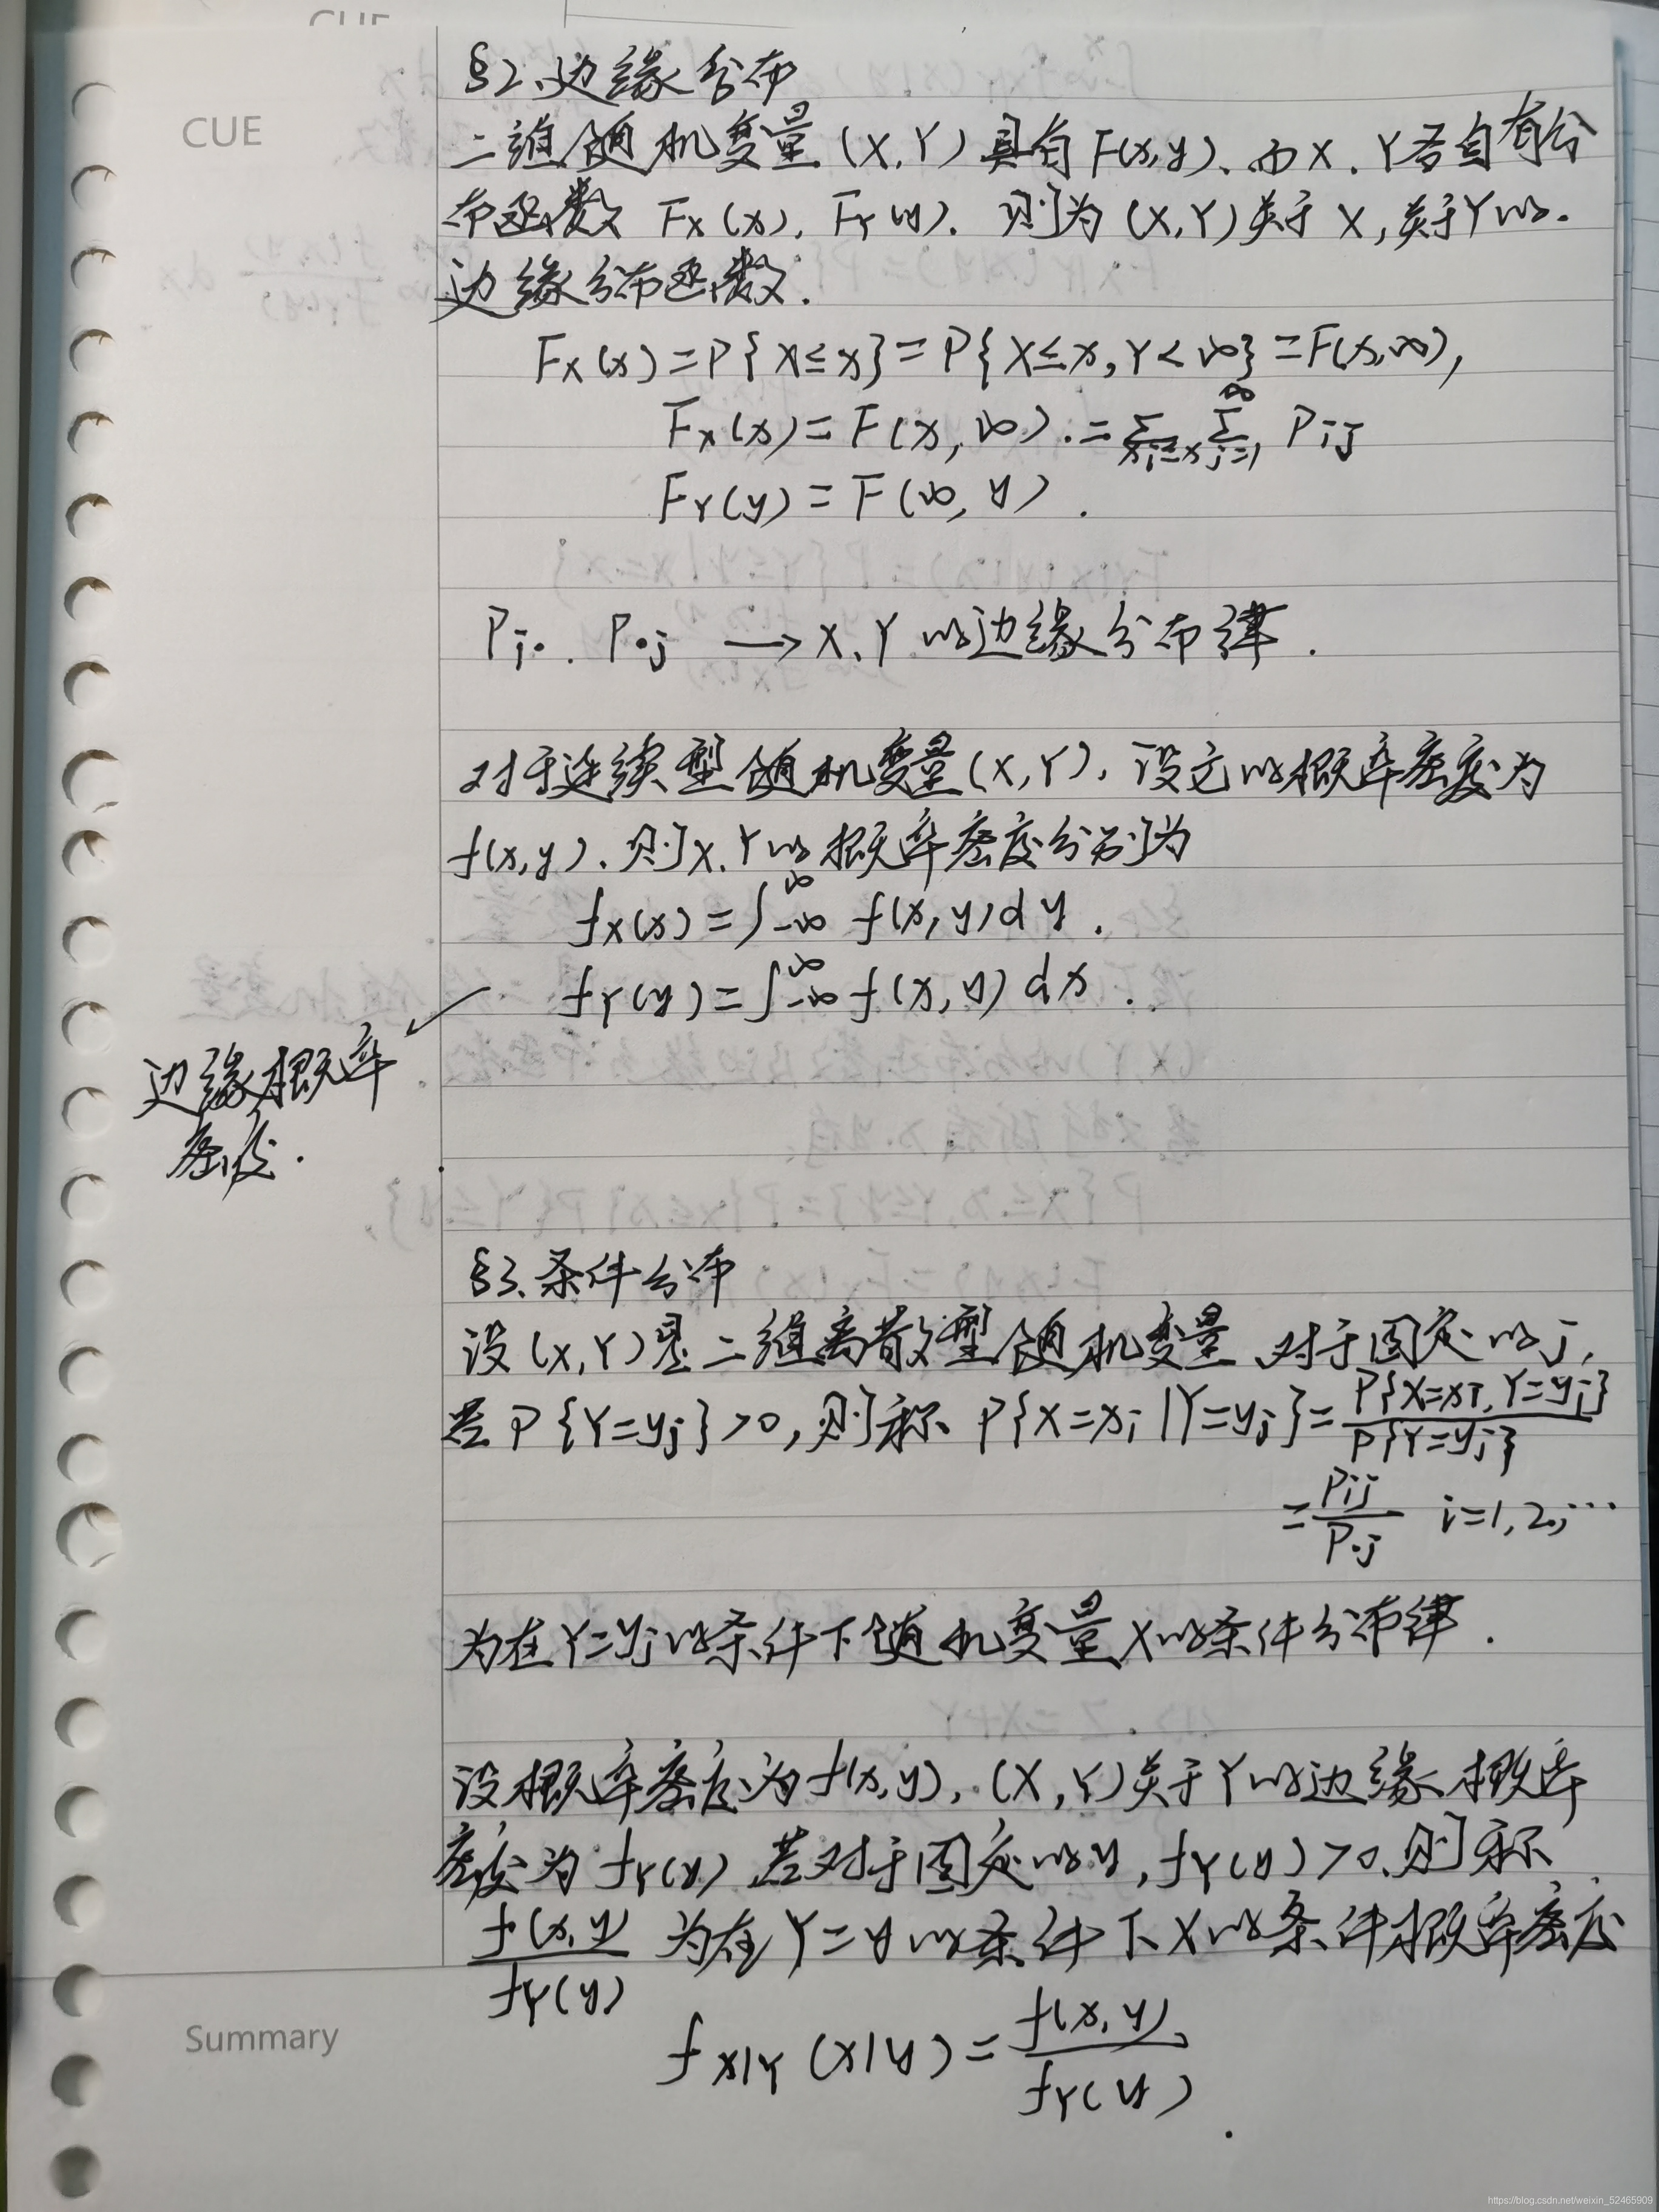 CUE
§2、边缘分布
二维随机变量 (X,Y) 具有 F(x,y)、而 X、Y各自有分
布函数 F_X(x), F_Y(y). 则为 (X,Y)关于 X,关于Y的.
边缘分布函数.
F_X(x)=P{X≤x}=P{X≤x,Y<∞}=F(x,∞),
F_X(x)=F(x,∞).=∑_{x_i≤x}∑_{j=1}^{∞} P_{ij}
F_Y(y)=F(∞,y).
P_{i·}. P_{·j} → X、Y 的边缘分布律.
对于连续型随机变量(X,Y),设它的概率密度为
f(x,y)、则X、Y的概率密度分别为
f_X(x)=∫_{-∞}^{∞} f(x,y)dy.
f_Y(y)=∫_{-∞}^{∞} f(x,y)dx.
边缘概率
密度.
§3、条件分布
设(X,Y)是二维离散型随机变量、对于固定的j,
若P{Y=y_j}>0,则称 P{X=x_i|Y=y_j}=\frac{P{X=x_i,Y=y_j}}{P{Y=y_j}}
=\frac{P_{ij}}{P_{·j}} i=1,2,…
为在Y=y_j的条件下随机变量X的条件分布律.
设概率密度为f(x,y),(X,Y)关于Y的边缘概率
密度为f_Y(y) 若对于固定的y,f_Y(y)>0、则称
\frac{f(x,y)}{f_Y(y)} 为在Y=y的条件下X的条件概率密度
f_{X|Y}(x|y)=\frac{f(x,y)}{f_Y(y)}.
Summary
https://blog.csdn.net/weixin_52465909